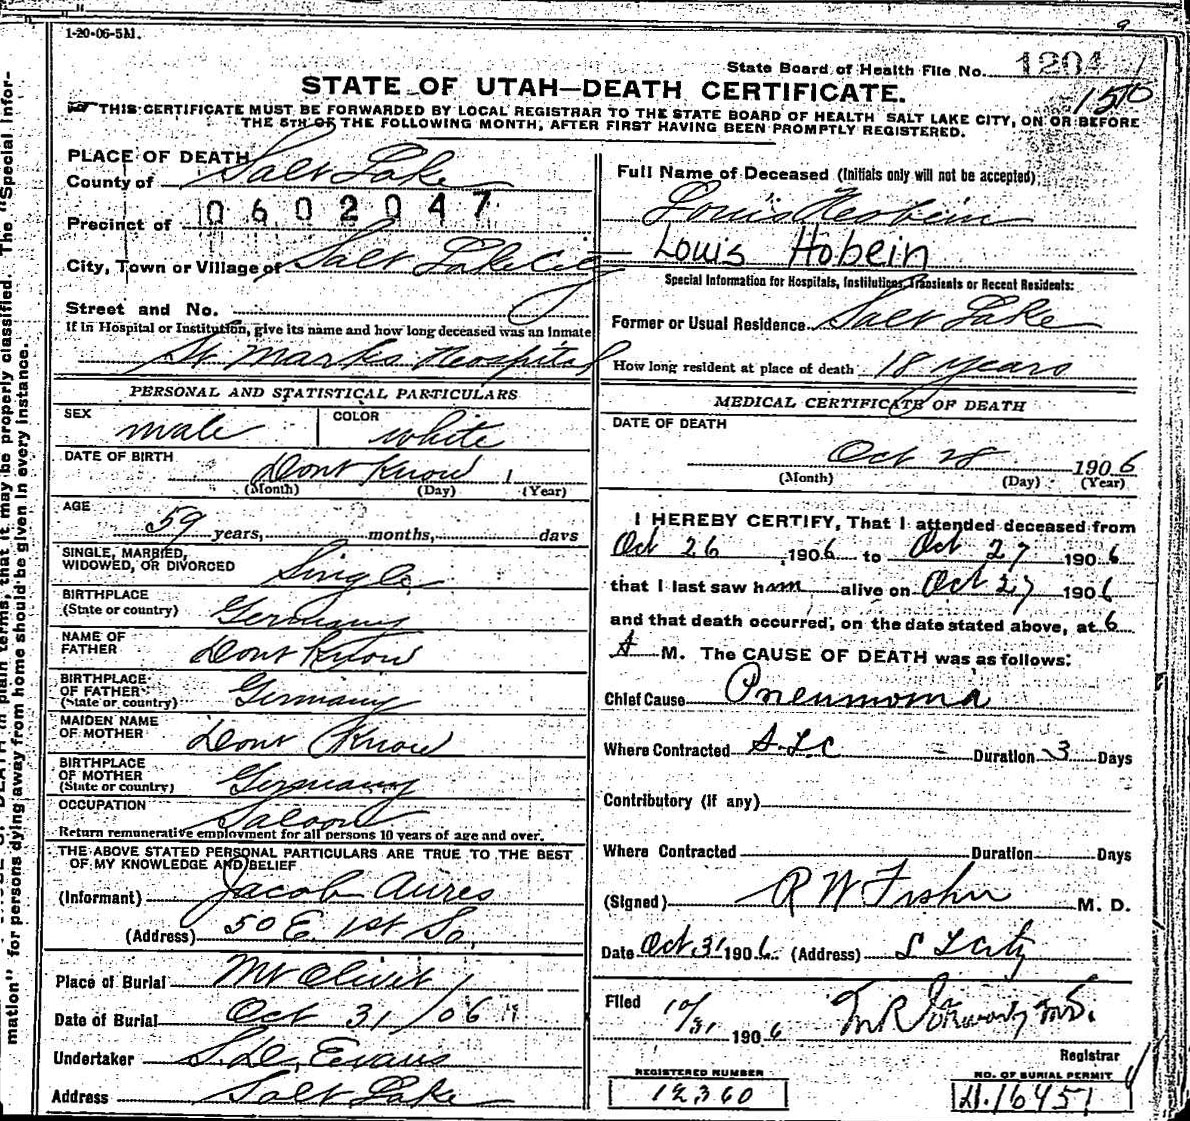 1-20-06-5M.
State Board of Health File No. 1204
1510
STATE OF UTAH—DEATH CERTIFICATE.
THIS CERTIFICATE MUST BE FORWARDED BY LOCAL REGISTRAR TO THE STATE BOARD OF HEALTH SALT LAKE CITY, ON OR BEFORE
THE 5TH OF THE FOLLOWING MONTH, AFTER FIRST HAVING BEEN PROMPTLY REGISTERED.
PLACE OF DEATH
County of Salt Lake
0602047
Precinct of
City, Town or Village of Salt Lake City
Street and No.
If in Hospital or Institution, give its name and how long deceased was an inmate
St Marks Hospital
PERSONAL AND STATISTICAL PARTICULARS
SEX male COLOR white
DATE OF BIRTH Dont Know
(Month) (Day) (Year)
AGE
59 years, months, days
SINGLE, MARRIED,
WIDOWED, OR DIVORCED Single
BIRTHPLACE
(State or country) Germany
NAME OF
FATHER Dont Know
BIRTHPLACE
OF FATHER
(State or country) Germany
MAIDEN NAME
OF MOTHER Dont Know
BIRTHPLACE
OF MOTHER
(State or country) Germany
OCCUPATION Saloon
Return remunerative employment for all persons 10 years of age and over.
THE ABOVE STATED PERSONAL PARTICULARS ARE TRUE TO THE BEST
OF MY KNOWLEDGE AND BELIEF
(Informant) Jacob Aures
(Address) 50 E. 1st So.
Place of Burial Mt Olivet
Date of Burial Oct 31/06
Undertaker S. D. Evans
Address Salt Lake
Full Name of Deceased (Initials only will not be accepted)
Louis Hobein
Louis Hobein
Special Information for Hospitals, Institutions, Transients or Recent Residents:
Former or Usual Residence Salt Lake
How long resident at place of death 18 years
MEDICAL CERTIFICATE OF DEATH
DATE OF DEATH
Oct 28 1906
(Month) (Day) (Year)
I HEREBY CERTIFY, That I attended deceased from
Oct 26, 1906 to Oct 27 1906
that I last saw him alive on Oct 27 1906
and that death occurred, on the date stated above, at 6
A M. The CAUSE OF DEATH was as follows:
Chief Cause Pneumonia
Where Contracted S.L.C Duration 3 Days
Contributory (if any)
Where Contracted Duration Days
(Signed) R W Fisher M. D.
Date Oct 31 1906. (Address) S L City
Filed 10/31 1906 M R
Registrar
REGISTERED NUMBER
12360
NO. OF BURIAL PERMIT
D.16451
mation" for persons dying away from home should be given in every instance.
in plain terms, that it may be properly classified. The "Special Infor-